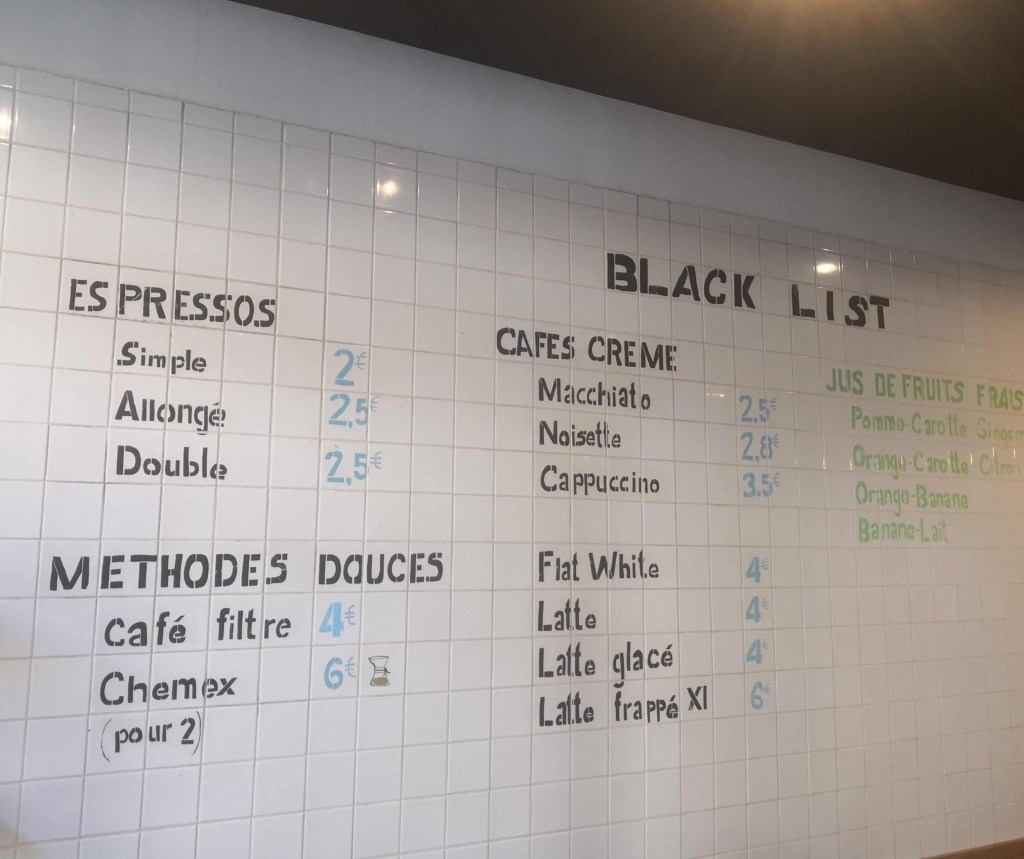 BLACK LIST
ESPRESSOS
Simple 2€
Allongé 2,5€
Double 2,5€
METHODES DOUCES
Café filtre 4€
Chemex 6€
(pour 2)
CAFES CREME
Macchiato 2.5€
Noisette 2,8€
Cappuccino 3.5€
Flat White 4€
Latte 4€
Latte glacé 4€
Latte frappé Xl 6€
JUS DE FRUITS FRAIS
Pomme-Carotte
Orange-Carotte-Citron
Orange-Banane
Banane-Lait